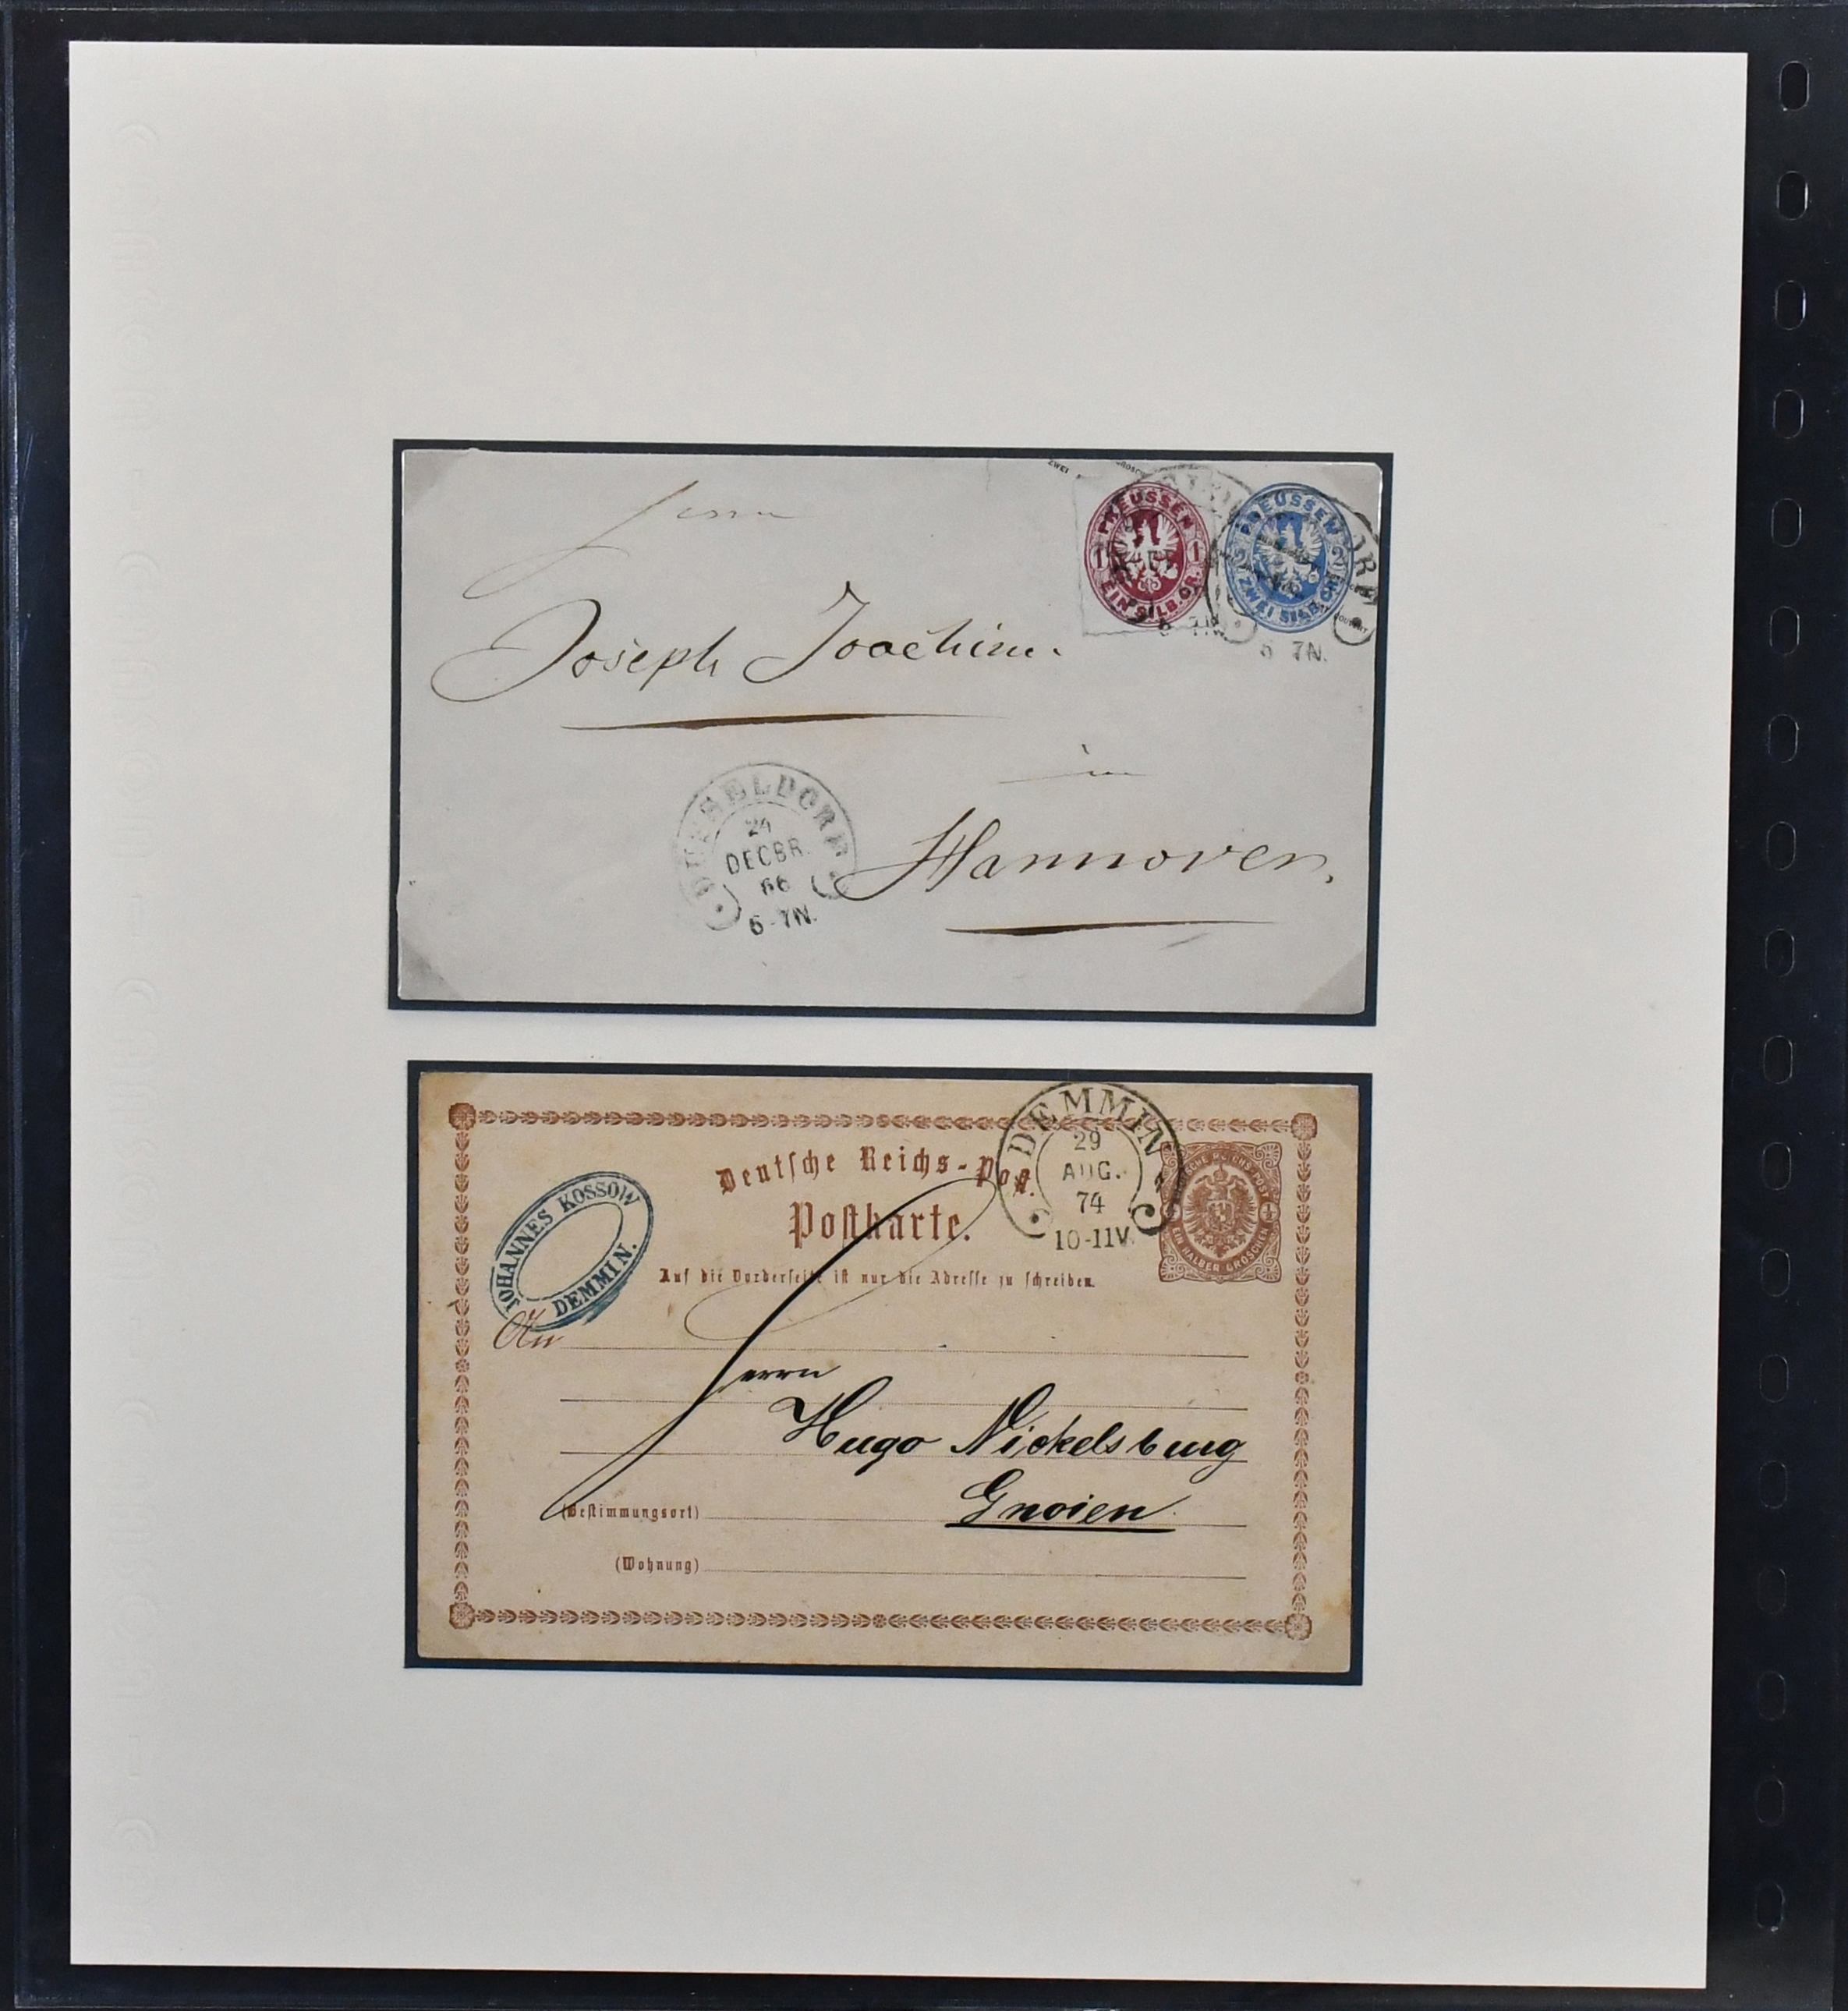 Herrn
Joseph Joachim.
in
Hannover.
PREUSSEN
1 1
EIN SILB.GR.
PREUSSEN
2 2
ZWEI SILB.GR.
6 7N.
DUESSELDORF
24
DECBR.
66
6-7N.
Deutsche Reichs-Post.
Postkarte.
Auf die Vorderseite ist nur die Adresse zu schreiben.
JOHANNES KOSSOW
DEMMIN.
DEMMIN
29
AUG.
74
10-11V.
DEUTSCHE REICHS-POST
EIN HALBER GROSCHEN
An
Herrn
Hugo Nickelsburg
(Bestimmungsort) Gnoien
(Wohnung)